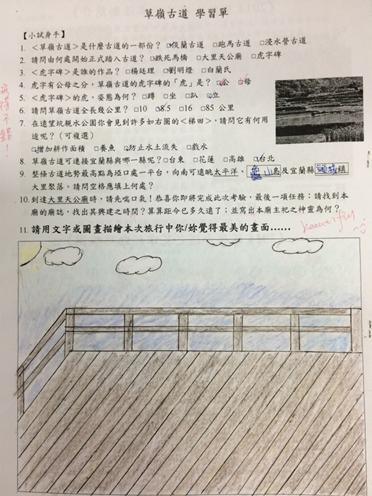 草嶺古道 學習單
【小試身手】
1. <草嶺古道>是什麼古道的一部份? □淡蘭古道 □跑馬古道 □浸水營古道
2. 請問由何處開始正式踏入古道? □跌死馬橋 □大里天公廟 □虎字碑
3. <虎字碑>是誰的作品? □楊廷理 □劉明燈 □白蘭氏
4. 虎字有公母之分,草嶺古道的虎字碑的「虎」是? □公 □母
5. <虎字碑>的虎,姿態為何? □蹲 □坐 □趴 □立
6. 請問草嶺古道全長幾公里? □10 □8.5 □16 □85 公里
7. 在遠望坑親水公園你會見到許多如右圖的<梯田>,請問它有何用
途呢?(可複選)
□增加耕作面積 □養魚 □防止水土流失 □戲水
8. 草嶺古道可連接宜蘭縣與哪一縣呢? □台東 □花蓮 □高雄 □台北
9. 整條古道地勢最高點為埡口處平台,向南可遠眺太平洋、龜山島及宜蘭縣頭城鎮
大里聚落。請問空格應填上何處?
10. 到達大里天公廟時,請先喘口氣!恭喜你即將完成此次考驗,最後一項任務:請找到本
廟的廟誌,找出其興建之時間?算算距今已多久遠了;並寫出本廟主祀之神靈為何?
11. 請用文字或圖畫描繪本次旅行中你/妳覺得最美的畫面……